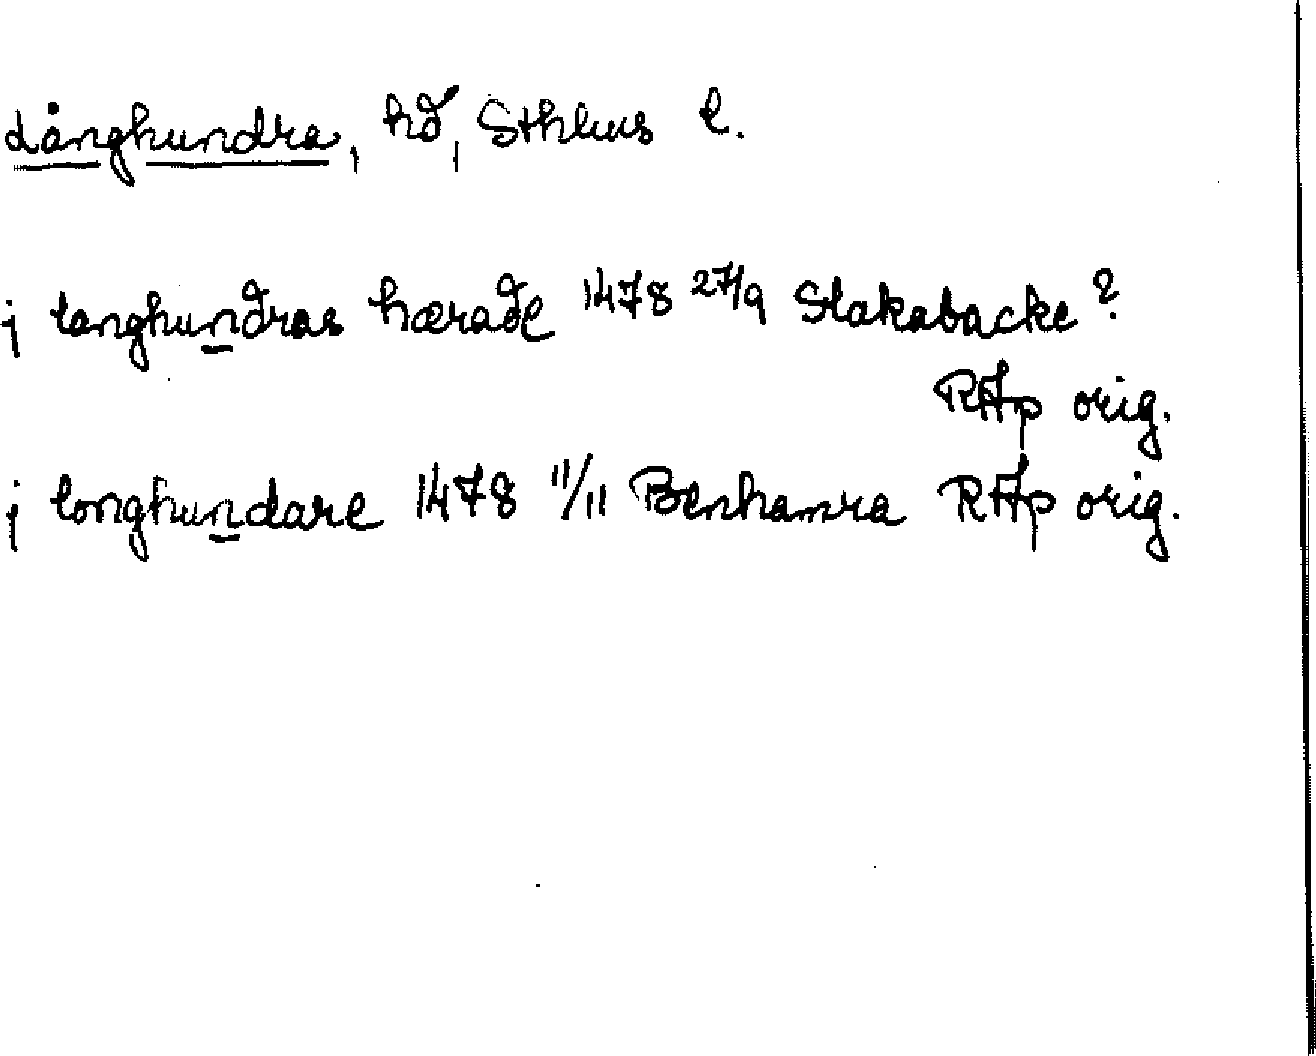 Långhundra, hd, Sthlms l.
j langhundras hæradhe 1478 27/9 Slakabacke?
RAp orig.
j longhundare 1478 11/11 Benhamra RAp orig.